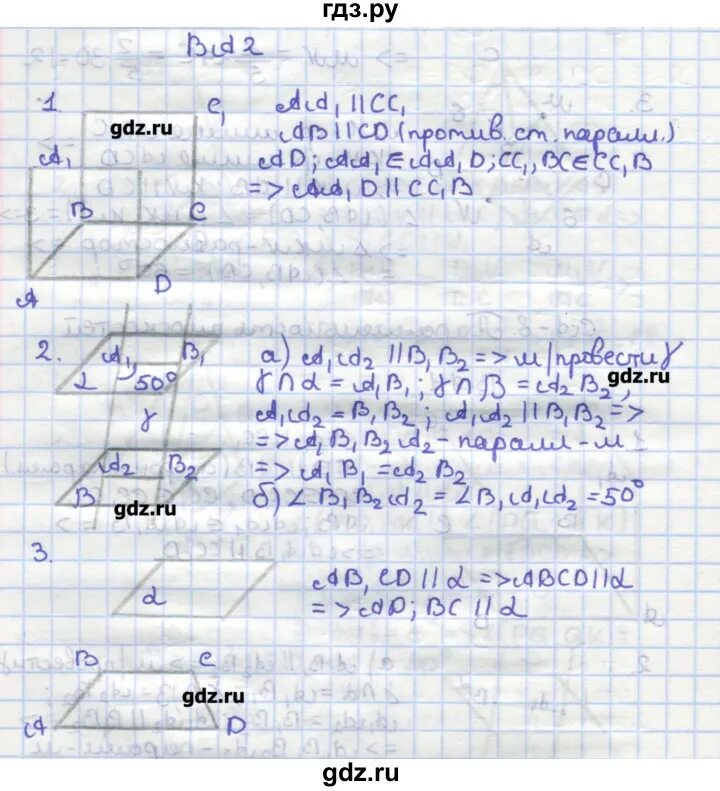 гдз.ру
Вid 2
1.
C₁
A₁
B
C
A
D
gdz.ru
AA₁ || CC₁
AB || CD (против. ст. паралл.)
AD; AA₁ ∈ AA₁D; CC₁, BC ∈ CC₁B
=> AA₁D || CC₁B
2.
A₁
B₁
α
50°
γ
A₂
B₂
B
gdz.ru
а) A₁A₂ || B₁B₂ => м/провести γ
gdz.ru
γ ∩ α = A₁B₁; γ ∩ β = A₂B₂;
A₁A₂ = B₁B₂; A₁A₂ || B₁B₂ =>
=> A₁B₁B₂A₂ - паралл-м
=> A₁B₁ = A₂B₂
б) ∠B₁B₂A₂ = ∠B₁A₁A₂ = 50°
3.
α
AB, CD || α => ABCD || α
=> AD; BC || α
B
C
gdz.ru
A
D
gdz.ru